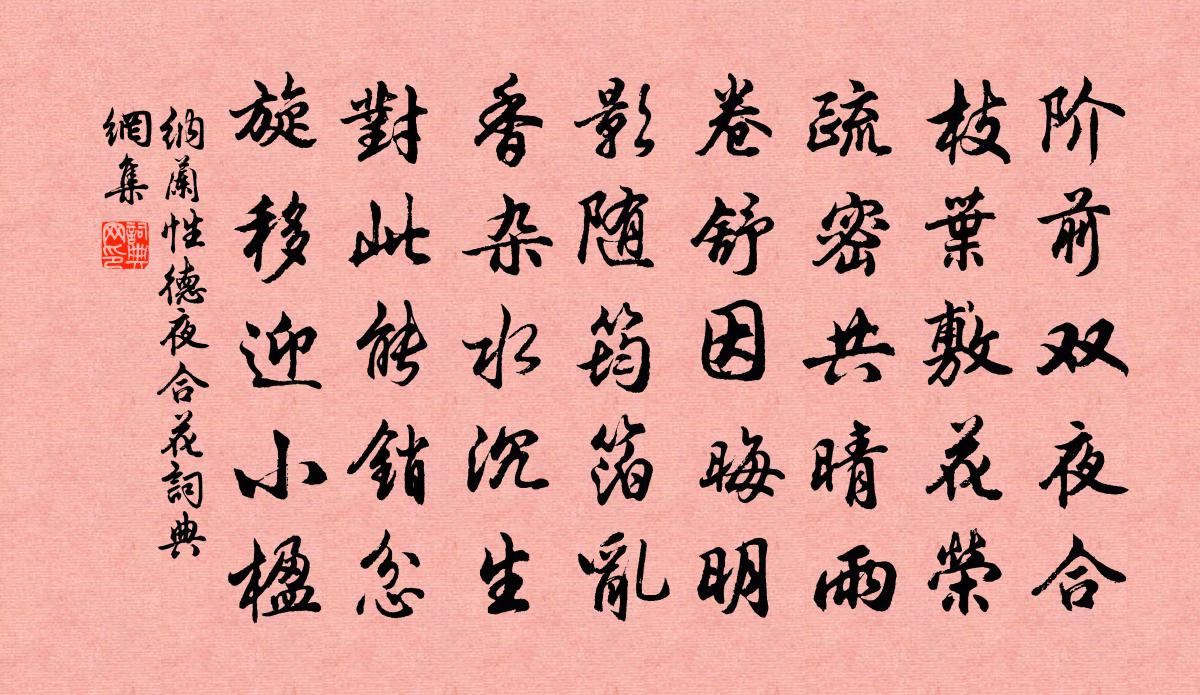 阶前双夜合
枝葉敷花榮
疏密共晴雨
卷舒因晦明
影随筠箔亂
香杂水沉生
對此能銷忿
旋移迎小楹
納蘭性德夜合花詞典
網集
詞典
网印